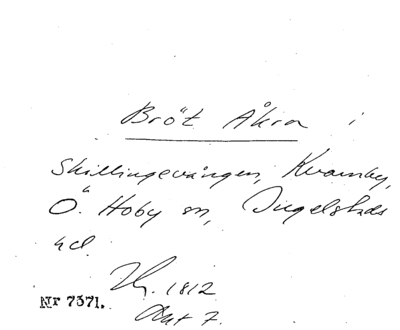 Bröt Åkra i
Skillingevången, Kvarnby,
Ö. Hoby sn, Ingelstads
hd.
1812
Akt 7.
Nr 7371.